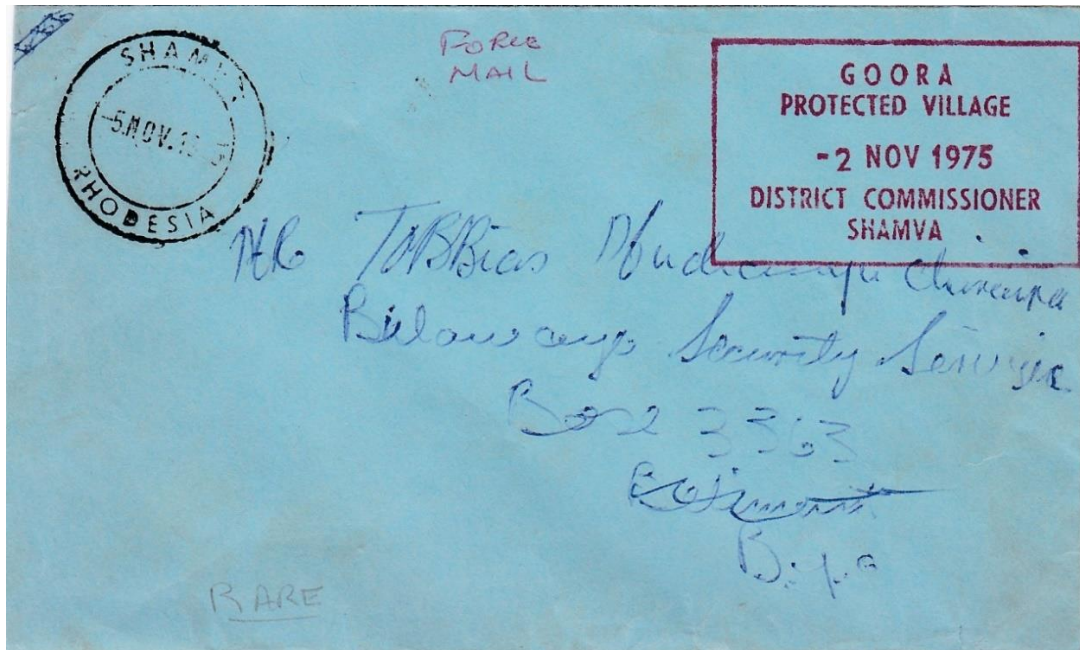 SHAMVA
-5.NOV.19 5
RHODESIA
FORCE
MAIL
GOORA
PROTECTED VILLAGE
-2 NOV 1975
DISTRICT COMMISSIONER
SHAMVA
MR TOBBias
Security Service
Box 3363
B.y.o
RARE